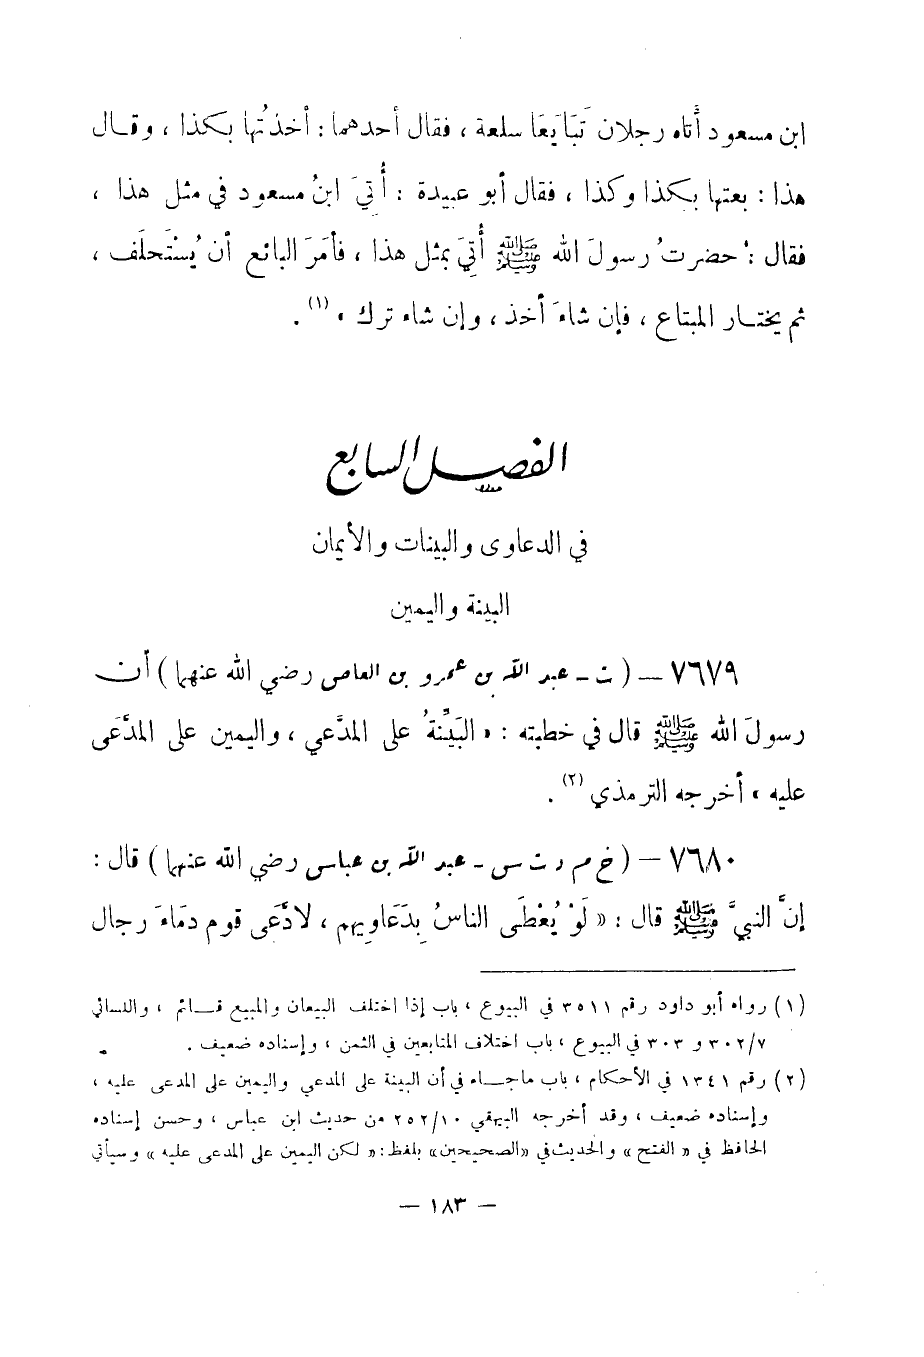 ابن مسعود أتاه رجلان تَبَايَعَا سلعة ، فقال أحدهما : أخذتُها بكذا ، وقال
هذا : بعتها بكذا وكذا ، فقال أبو عبيدة : أُتيَ ابنُ مسعود في مثل هذا ،
فقال : حضرتُ رسولَ الله ﷺ أُتِيَ بمثل هذا ، فأمَرَ البائع أن يُسْتَحلَف ،
ثم يختار المبتاع ، فإن شاءَ أخذ ، وإن شاء ترك » (١) .
الفصل السابع
في الدعاوى والبينات والأيمان
البينة واليمين
٧٦٧٩ – ( ت - عبد الله بن عمرو بن العاص رضي الله عنهما ) أن
رسولَ الله ﷺ قال في خطبته : « البَيِّنةُ على المدَّعي ، واليمين على المدَّعَى
عليه » أخرجه الترمذي (٢) .
٧٦٨٠ – ( خ م د ت س - عبد الله بن عباس رضي الله عنهما ) قال :
إنَّ النبيَّ ﷺ قال : « لَوْ يُعْطَى الناسُ بِدَعَاويهم ، لادَّعَى قوم دمَاءَ رجال
(١) رواه أبو داود رقم ٣٥١١ في البيوع ، باب إذا اختلف البيعان والمبيع قائم ، والنسائي
٣٠٢/٧ و ٣٠٣ في البيوع ، باب اختلاف المتابعين في الثمن ، وإسناده ضعيف .
(٢) رقم ١٣٤١ في الأحكام ، باب ماجاء في أن البينة على المدعي واليمين على المدعى عليه ،
وإسناده ضعيف ، وقد أخرجه البيهقي ٢٥٢/١٠ من حديث ابن عباس ، وحسن إسناده
الحافظ في « الفتح » والحديث في «الصحيحين» بلفظ : « لكن اليمين على المدعى عليه » وسيأتي
– ١٨٣ –